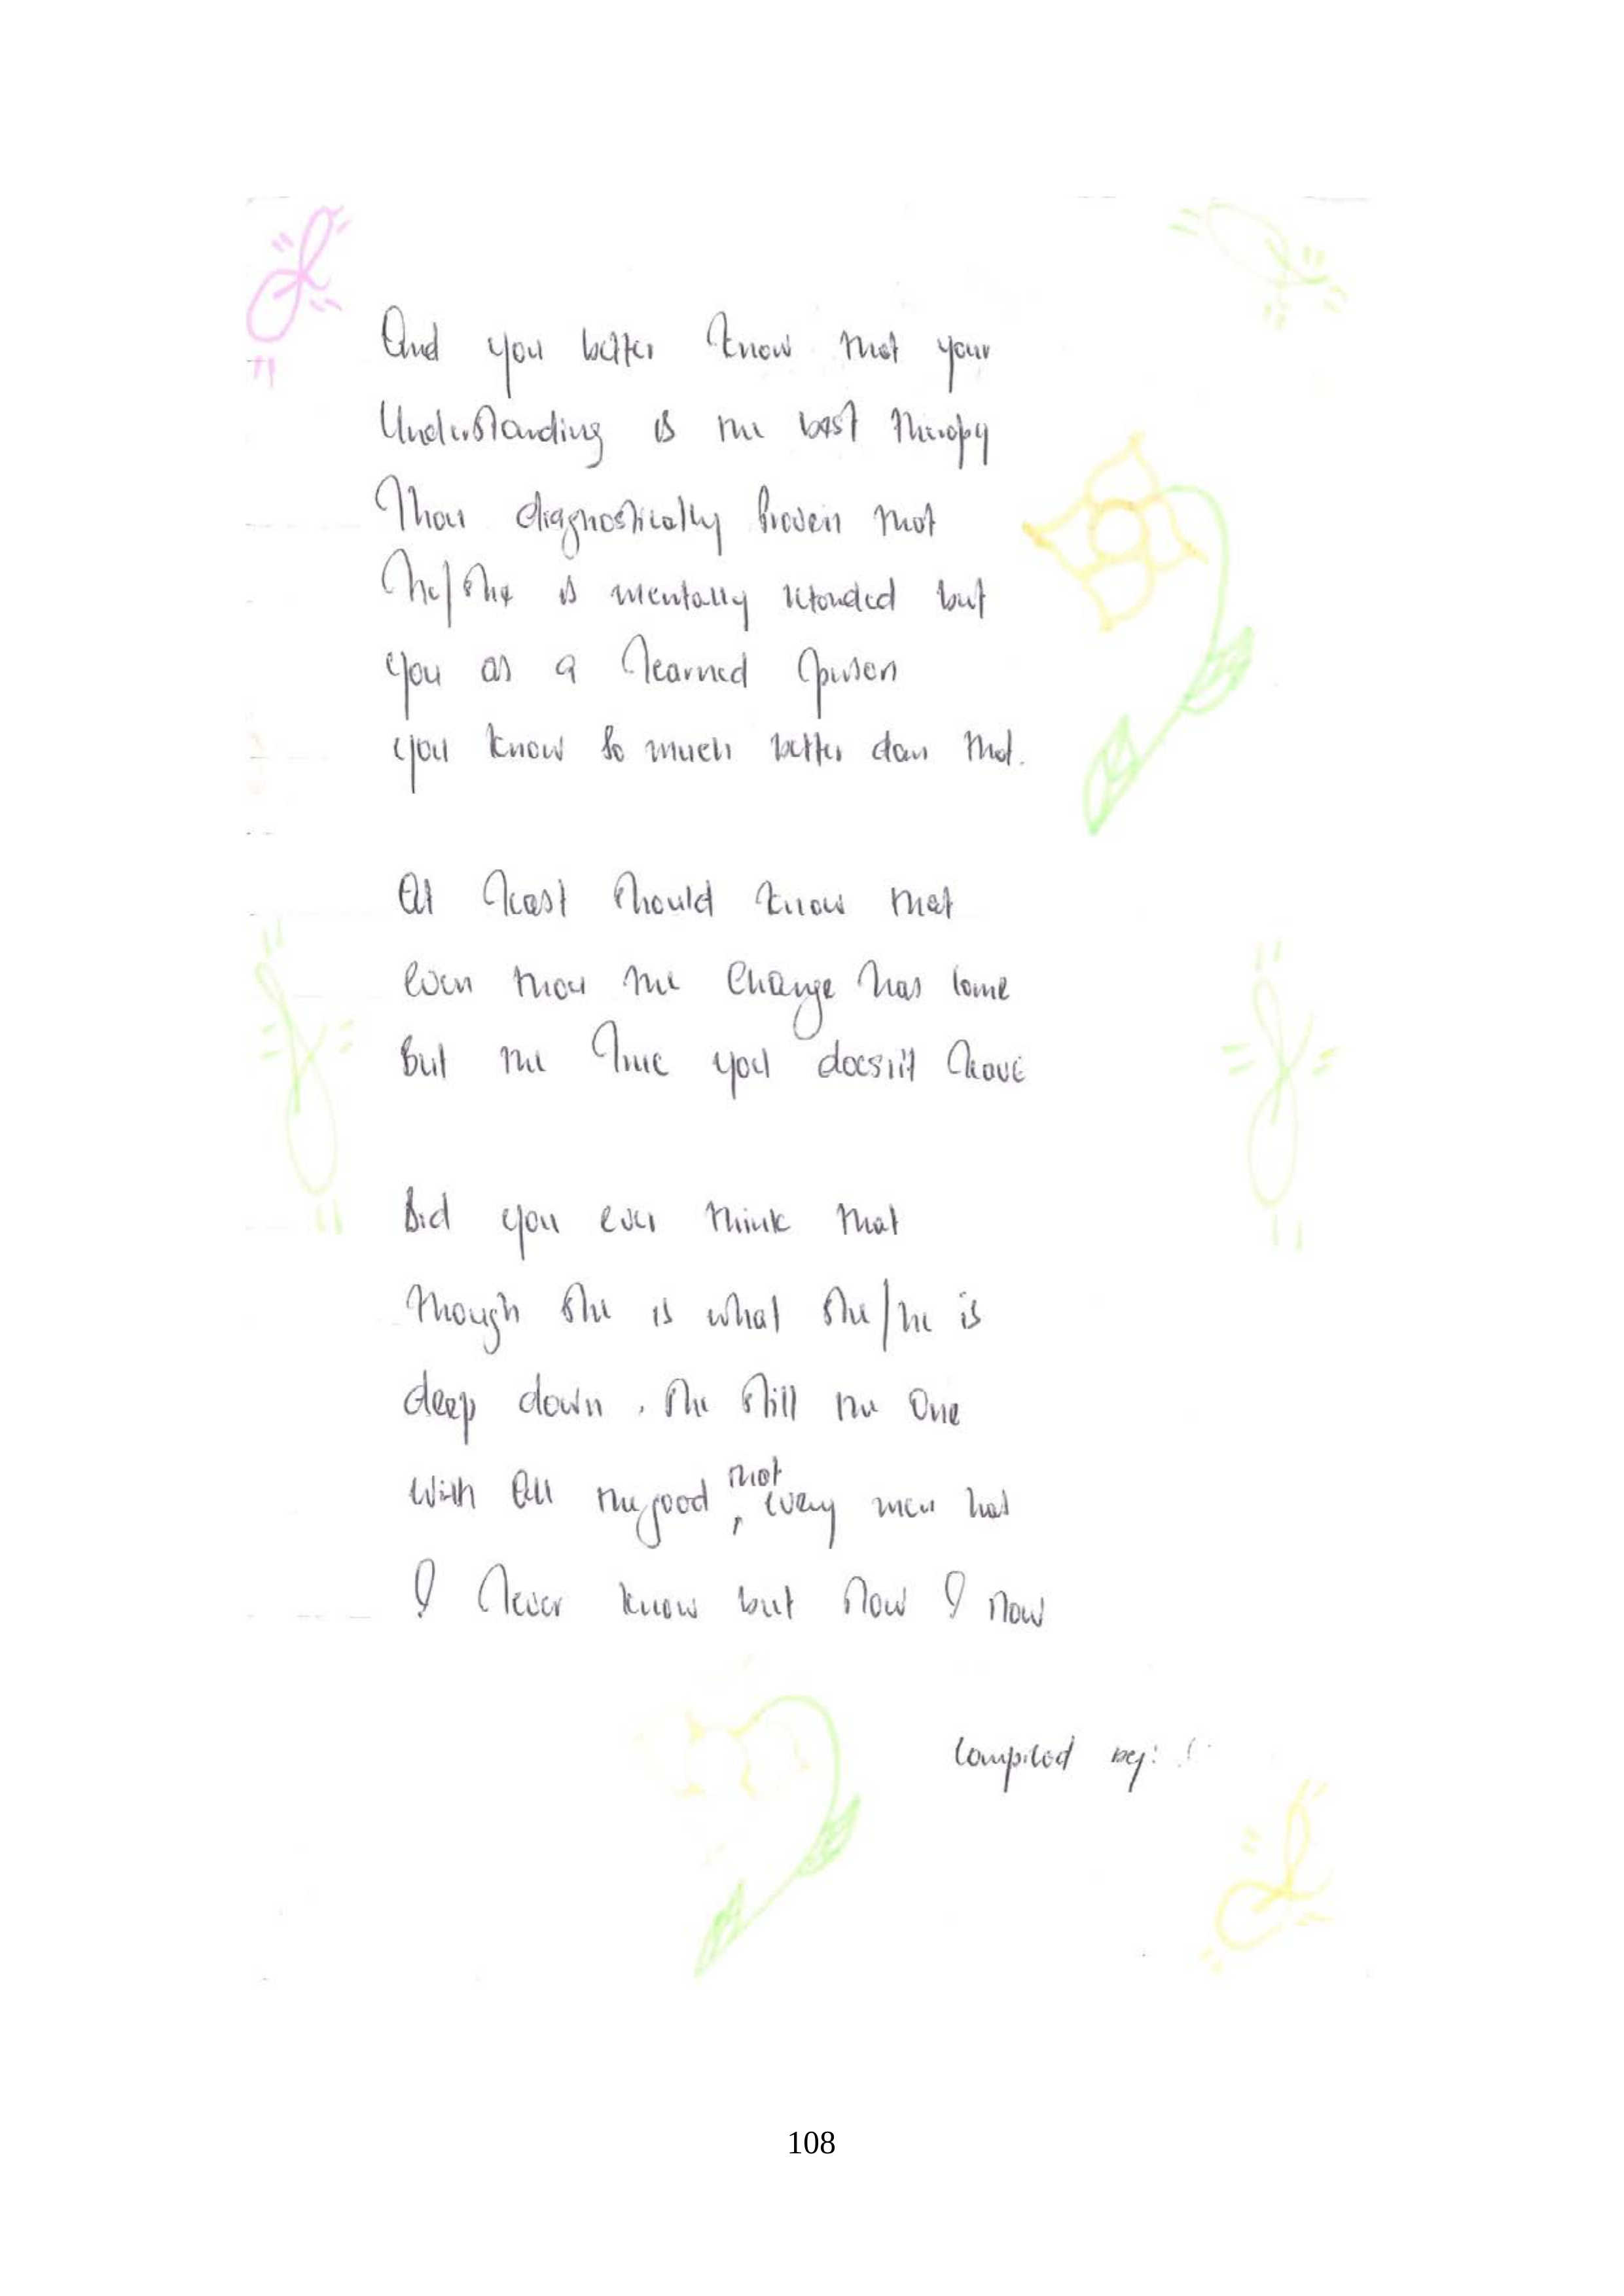 And you better know that your
Understanding is the best therapy
Thou diagnostically proven that
he/she is mentally retarded but
you as a learned person
you know so much better dan that.
At least should know that
even thou the change has come
But the time you doesn't have
Did you ever think that
though she is what she/he is
deep down, she still the one
With all the good that, every men has
I never know but now I now
Compiled by:
108